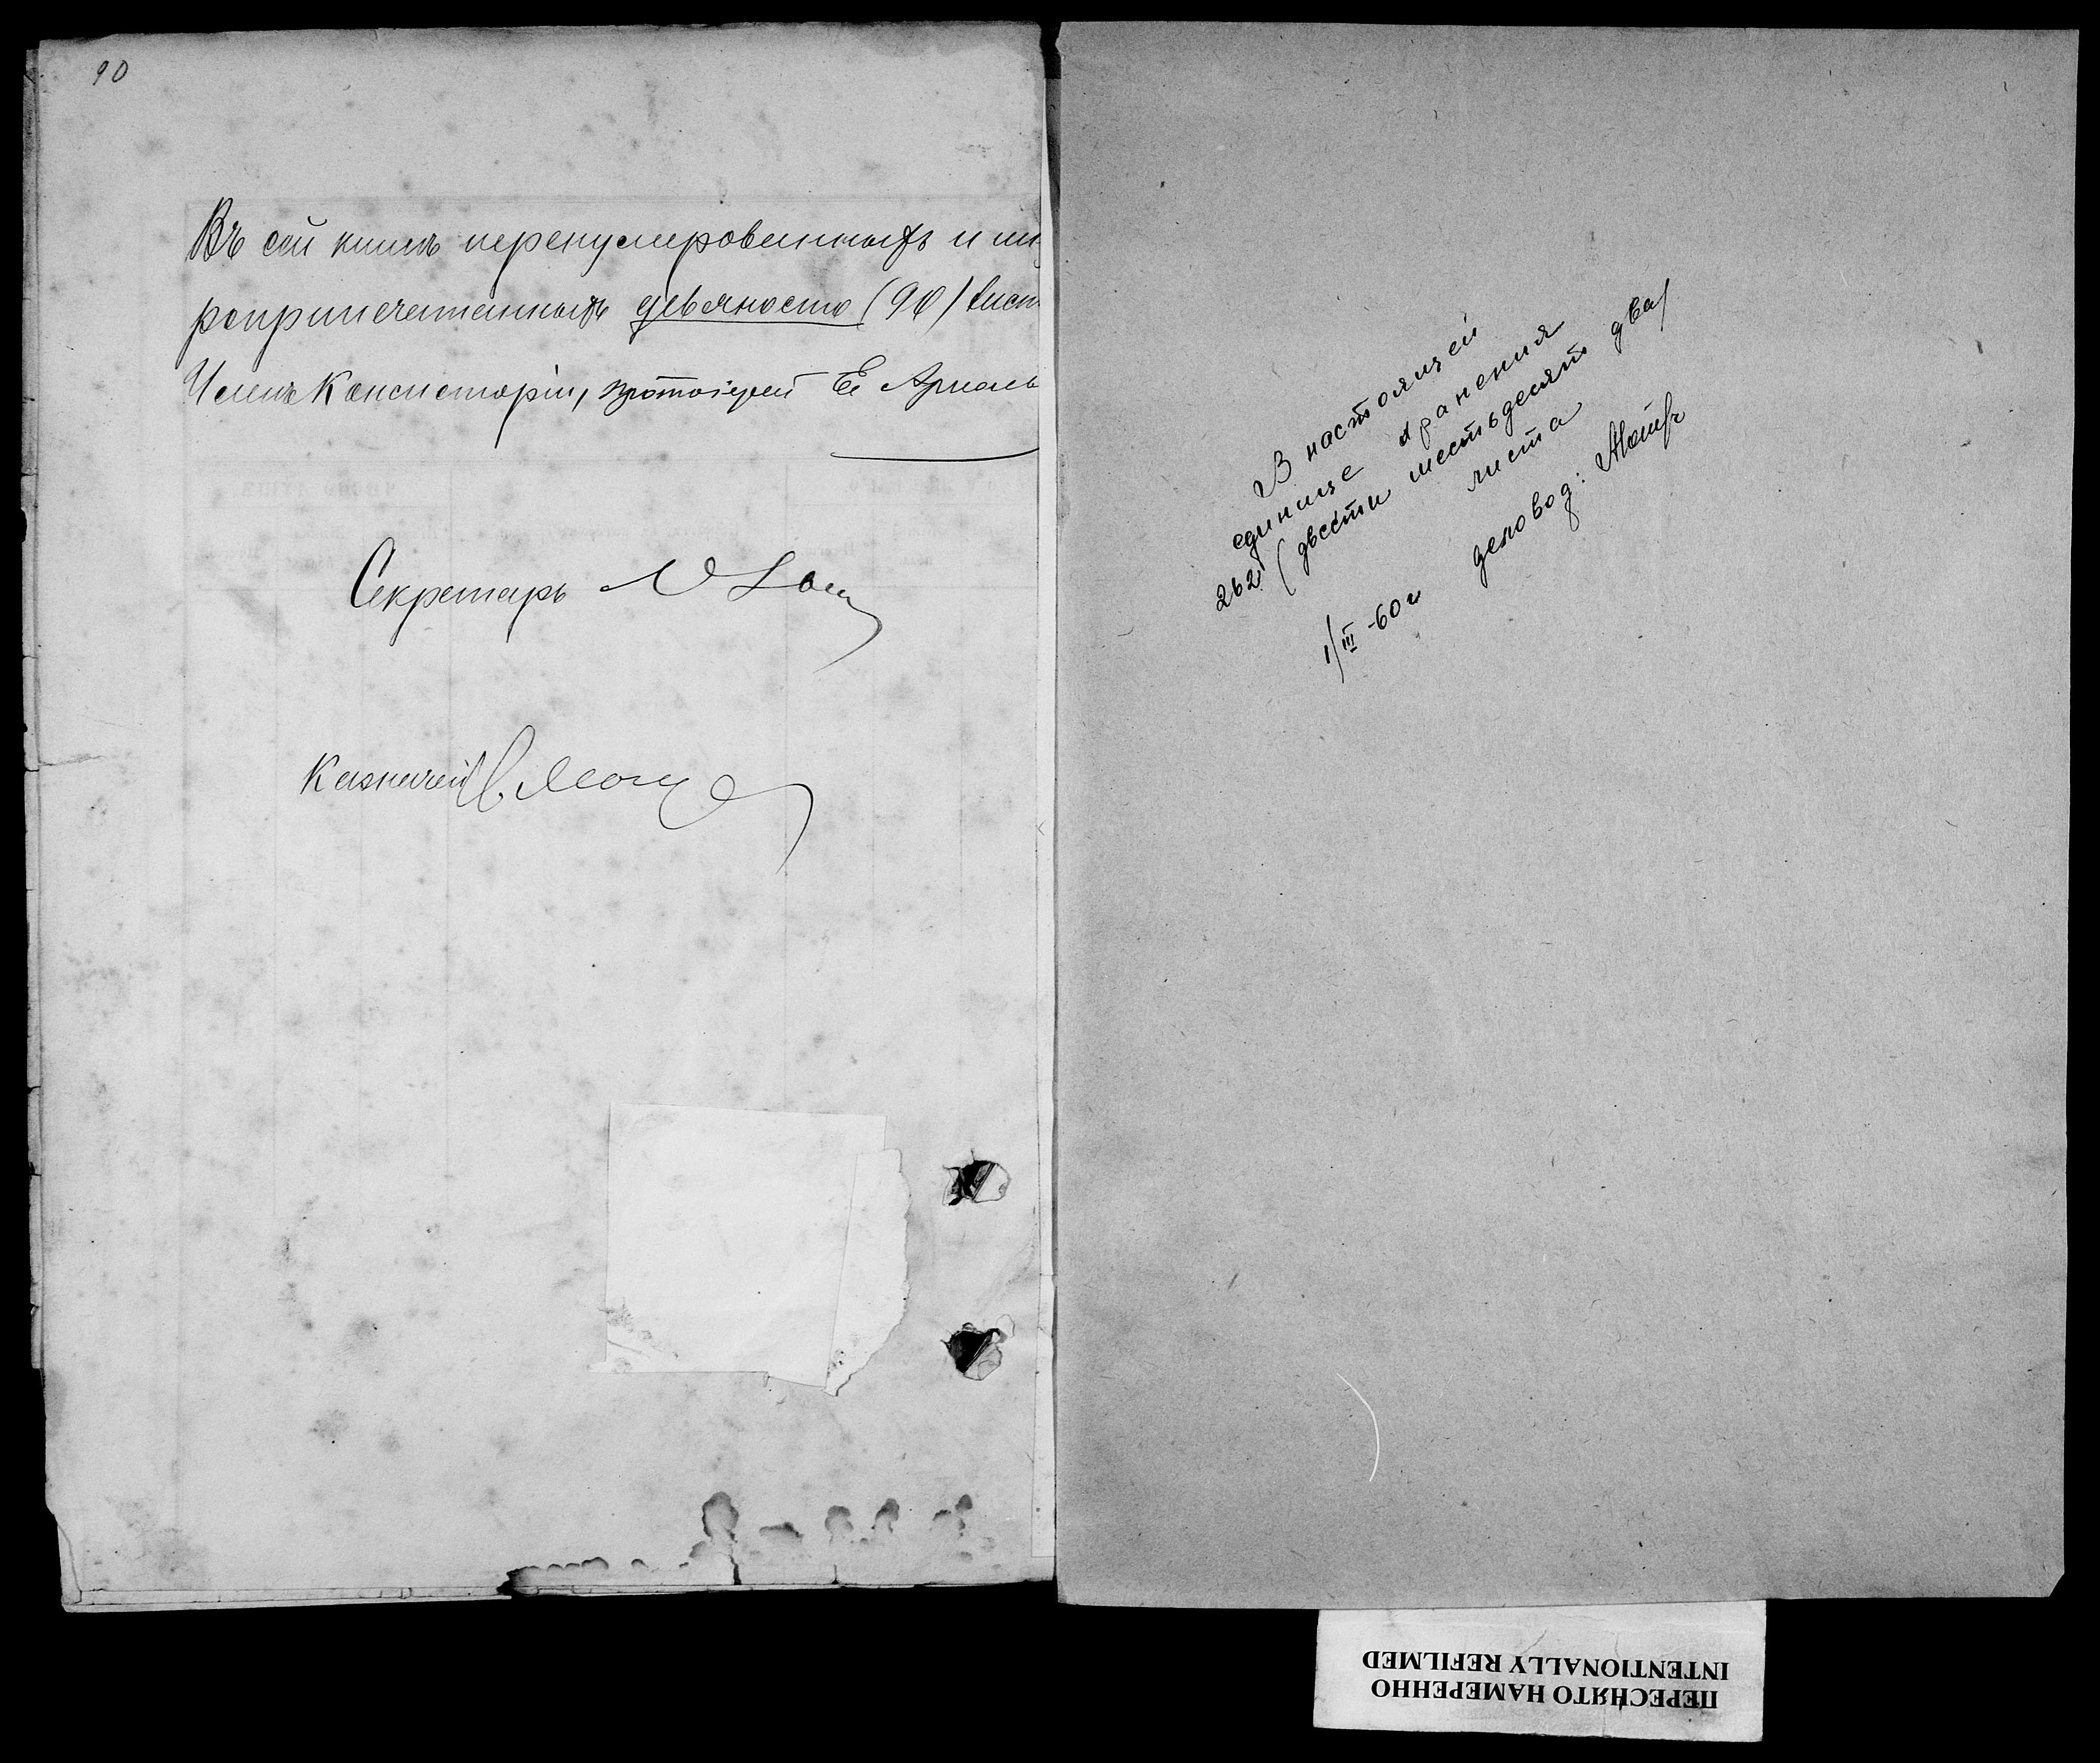 90
Въ сей книгѣ перенумерованныхъ и шну
ропрепечатанныхъ девяносто (90) лист
Членъ Консисторіи, протоіерей Е.
Секретарь
Казначей
В настоящей
единице хранения
262 (двести шестьдесят два)
листа
1/III-60 г деловод:
ПЕРЕСНЯТО НАМЕРЕННО
INTENTIONALLY REFILMED